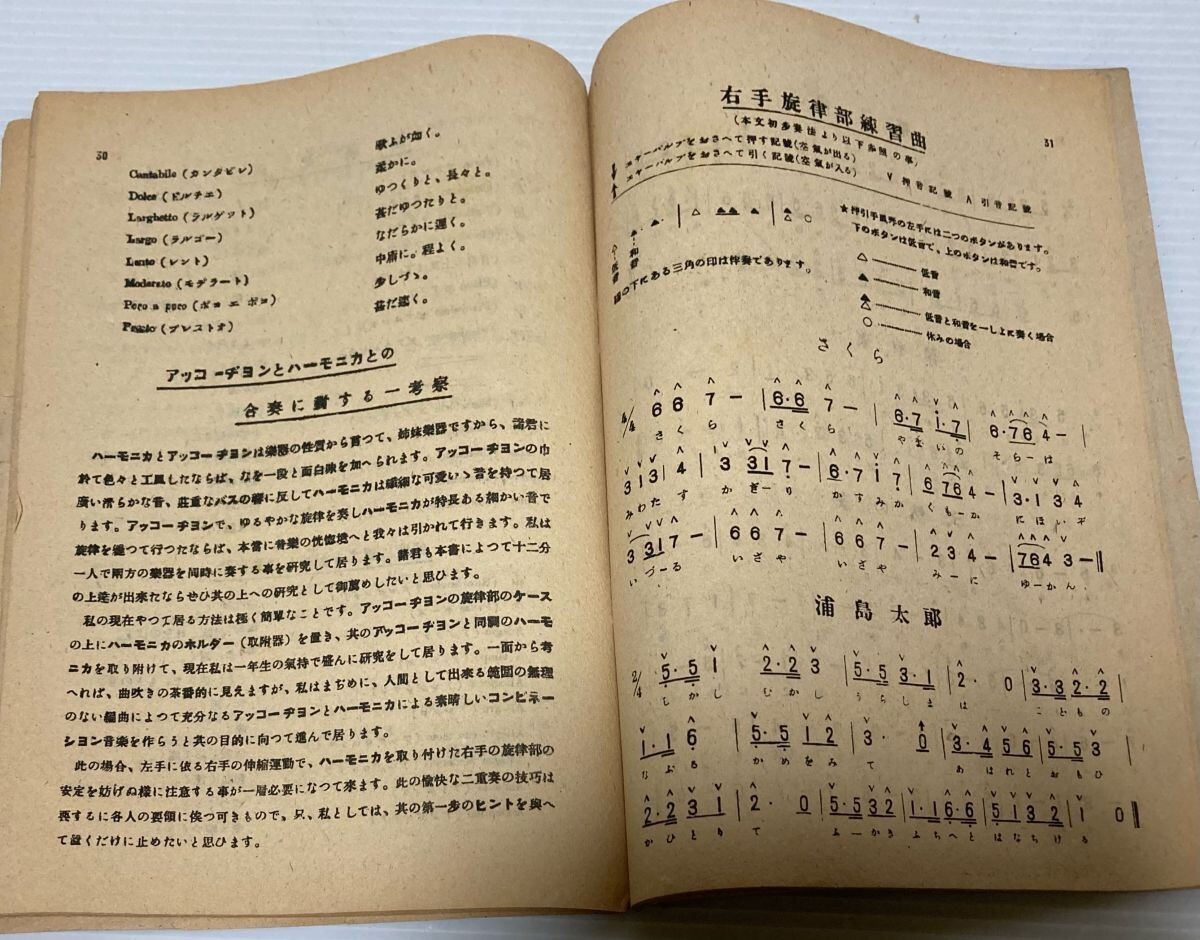 30
歌ふが如く。
Cantabile (カンタビレ) 柔かに。
Dolce (ドルチエ) ゆつくりと、長々と。
Larghetto (ラルゲット) 甚だゆつたりと。
Largo (ラルゴー) なだらかに遲く。
Lento (レント) 中庸に。程よく。
Moderato (モデラート) 少しづゝ。
Poco a poco (ポコ エ ポコ) 甚だ速く。
Presto (プレストオ)
アッコーヂヨンとハーモニカとの
合奏に對する一考察
ハーモニカとアッコーヂヨンは樂器の性質から言つて、姉妹樂器ですから、諸君に
於て色々と工風したならば、なを一段と面白味を加へられます。アッコーヂヨンの巾
廣い滑らかな音、莊重なバスの響に反してハーモニカは繊細な可愛いゝ音を持つて居
ります。アッコーヂヨンで、ゆるやかな旋律を奏しハーモニカが特長ある細かい音で
旋律を縫つて行つたならば、本當に音樂の恍惚境へと我々は引かれて行きます。私は
一人で兩方の樂器を同時に奏する事を硏究して居ります。諸君も本書によつて十二分
の上達が出來たならせひ其の上への硏究として御薦めしたいと思ひます。
私の現在やつて居る方法は極く簡單なことです。アッコーヂヨンの旋律部のケース
の上にハーモニカのホルダー(取附器)を置き、其のアッコーヂヨンと同調のハーモ
ニカを取り附けて、現在私は一年生の氣持で盛んに硏究をして居ります。一面から考
へれば、曲吹きの茶番的に見えますが、私はまぢめに、人間として出來る範圍の無理
のない編曲によつて充分なるアッコーヂヨンとハーモニカによる素晴しいコンビネー
ション音樂を作らうと其の目的に向つて進んで居ります。
此の場合、左手に依る右手の伸縮運動で、ハーモニカを取り付けた右手の旋律部の
安定を妨げぬ樣に注意する事が一層必要になつて來ます。此の愉快な二重奏の技巧は
要するに各人の要領に俟つ可きもので、只、私としては、其の第一步のヒントを與へ
て置くだけに止めたいと思ひます。
31
右手旋律部練習曲
(本文初步奏法より以下參照の事)
エヤーバルブをおさへて押す記號(空氣が出る)
エヤーバルブをおさへて引く記號(空氣が入る)
∨ 押音記號 ∧ 引音記號
★押引手風琴の左手には二つのボタンがあります。
下のボタンは低音で、上のボタンは和音です。
△ 低音
▲ 和音
低音と和音を一しよに奏く場合
○ 休みの場合
の下にある三角の印は伴奏であります。
さくら
4/4 6 6 7 – | 6·6 7 – | 6·7 i·7 | 6·76 4 – |
さくら さくら やまいの そらーは
3 1 3 | 4 | 3 31 7 – | 6·7 i 7 | 6 764 – | 3·1 3 4
みわたす かぎーり かすみか くもーか にほいぞ
3 31 7 – | 6 6 7 – | 6 6 7 – | 2 3 4 – | 764 3 – ‖
いづーる いざや いざや みーに ゆーかん
浦島太郎
2/4 5·5 1 | 2·2 3 | 5·5 3·1 | 2· 0 | 3·3 2·2 |
むかし うらしま は こどもの
1·1 6 | 5·5 1 2 | 3· 0 | 3·4 5 6 | 5·5 3 |
なぶる かめをみ て あはれと おもひ
2·2 3 1 | 2· 0 | 5·5 3 2 | 1·1 6·6 | 5 1 3 2 | 1 0 ‖
かひとり て ふーかき ふちへと はなちける